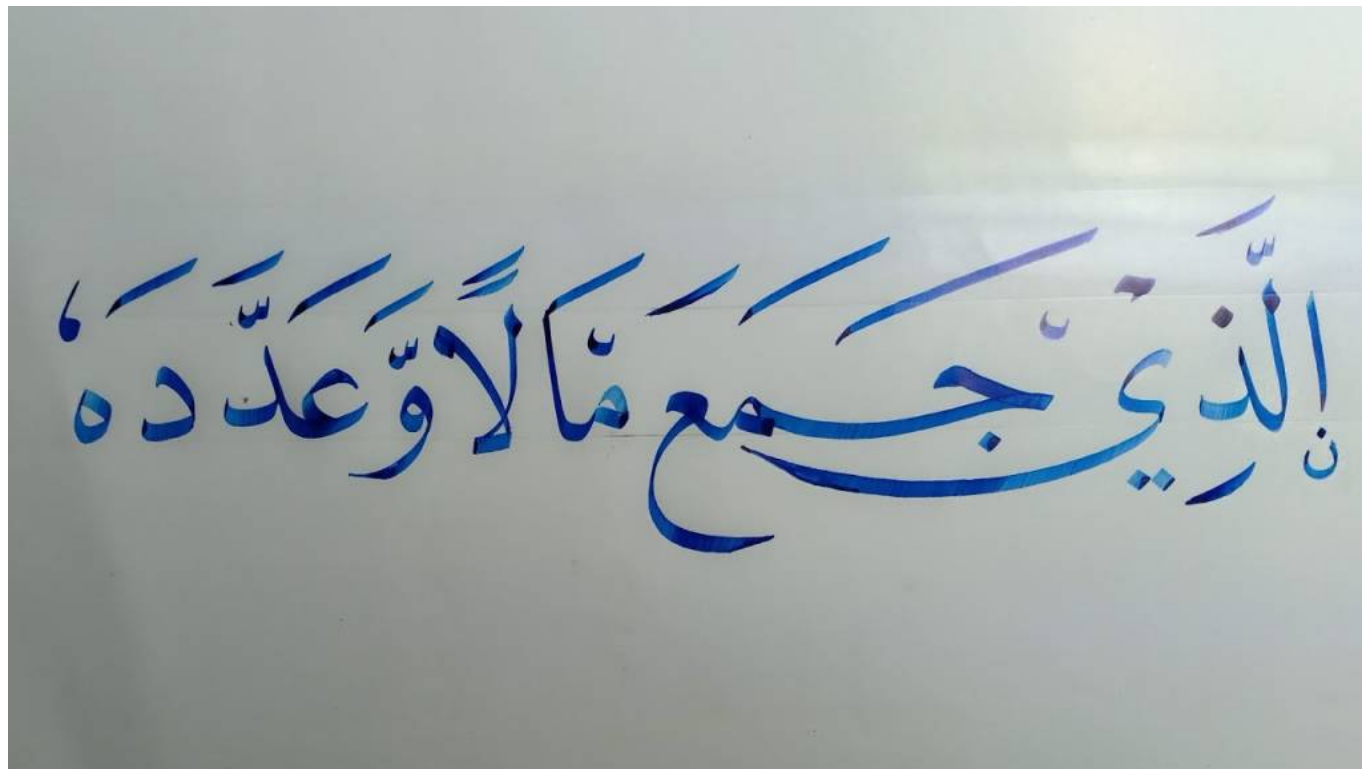 اۨلَّذِيۡ جَمَعَ مَّالًا وَّعَدَّدَهٗ